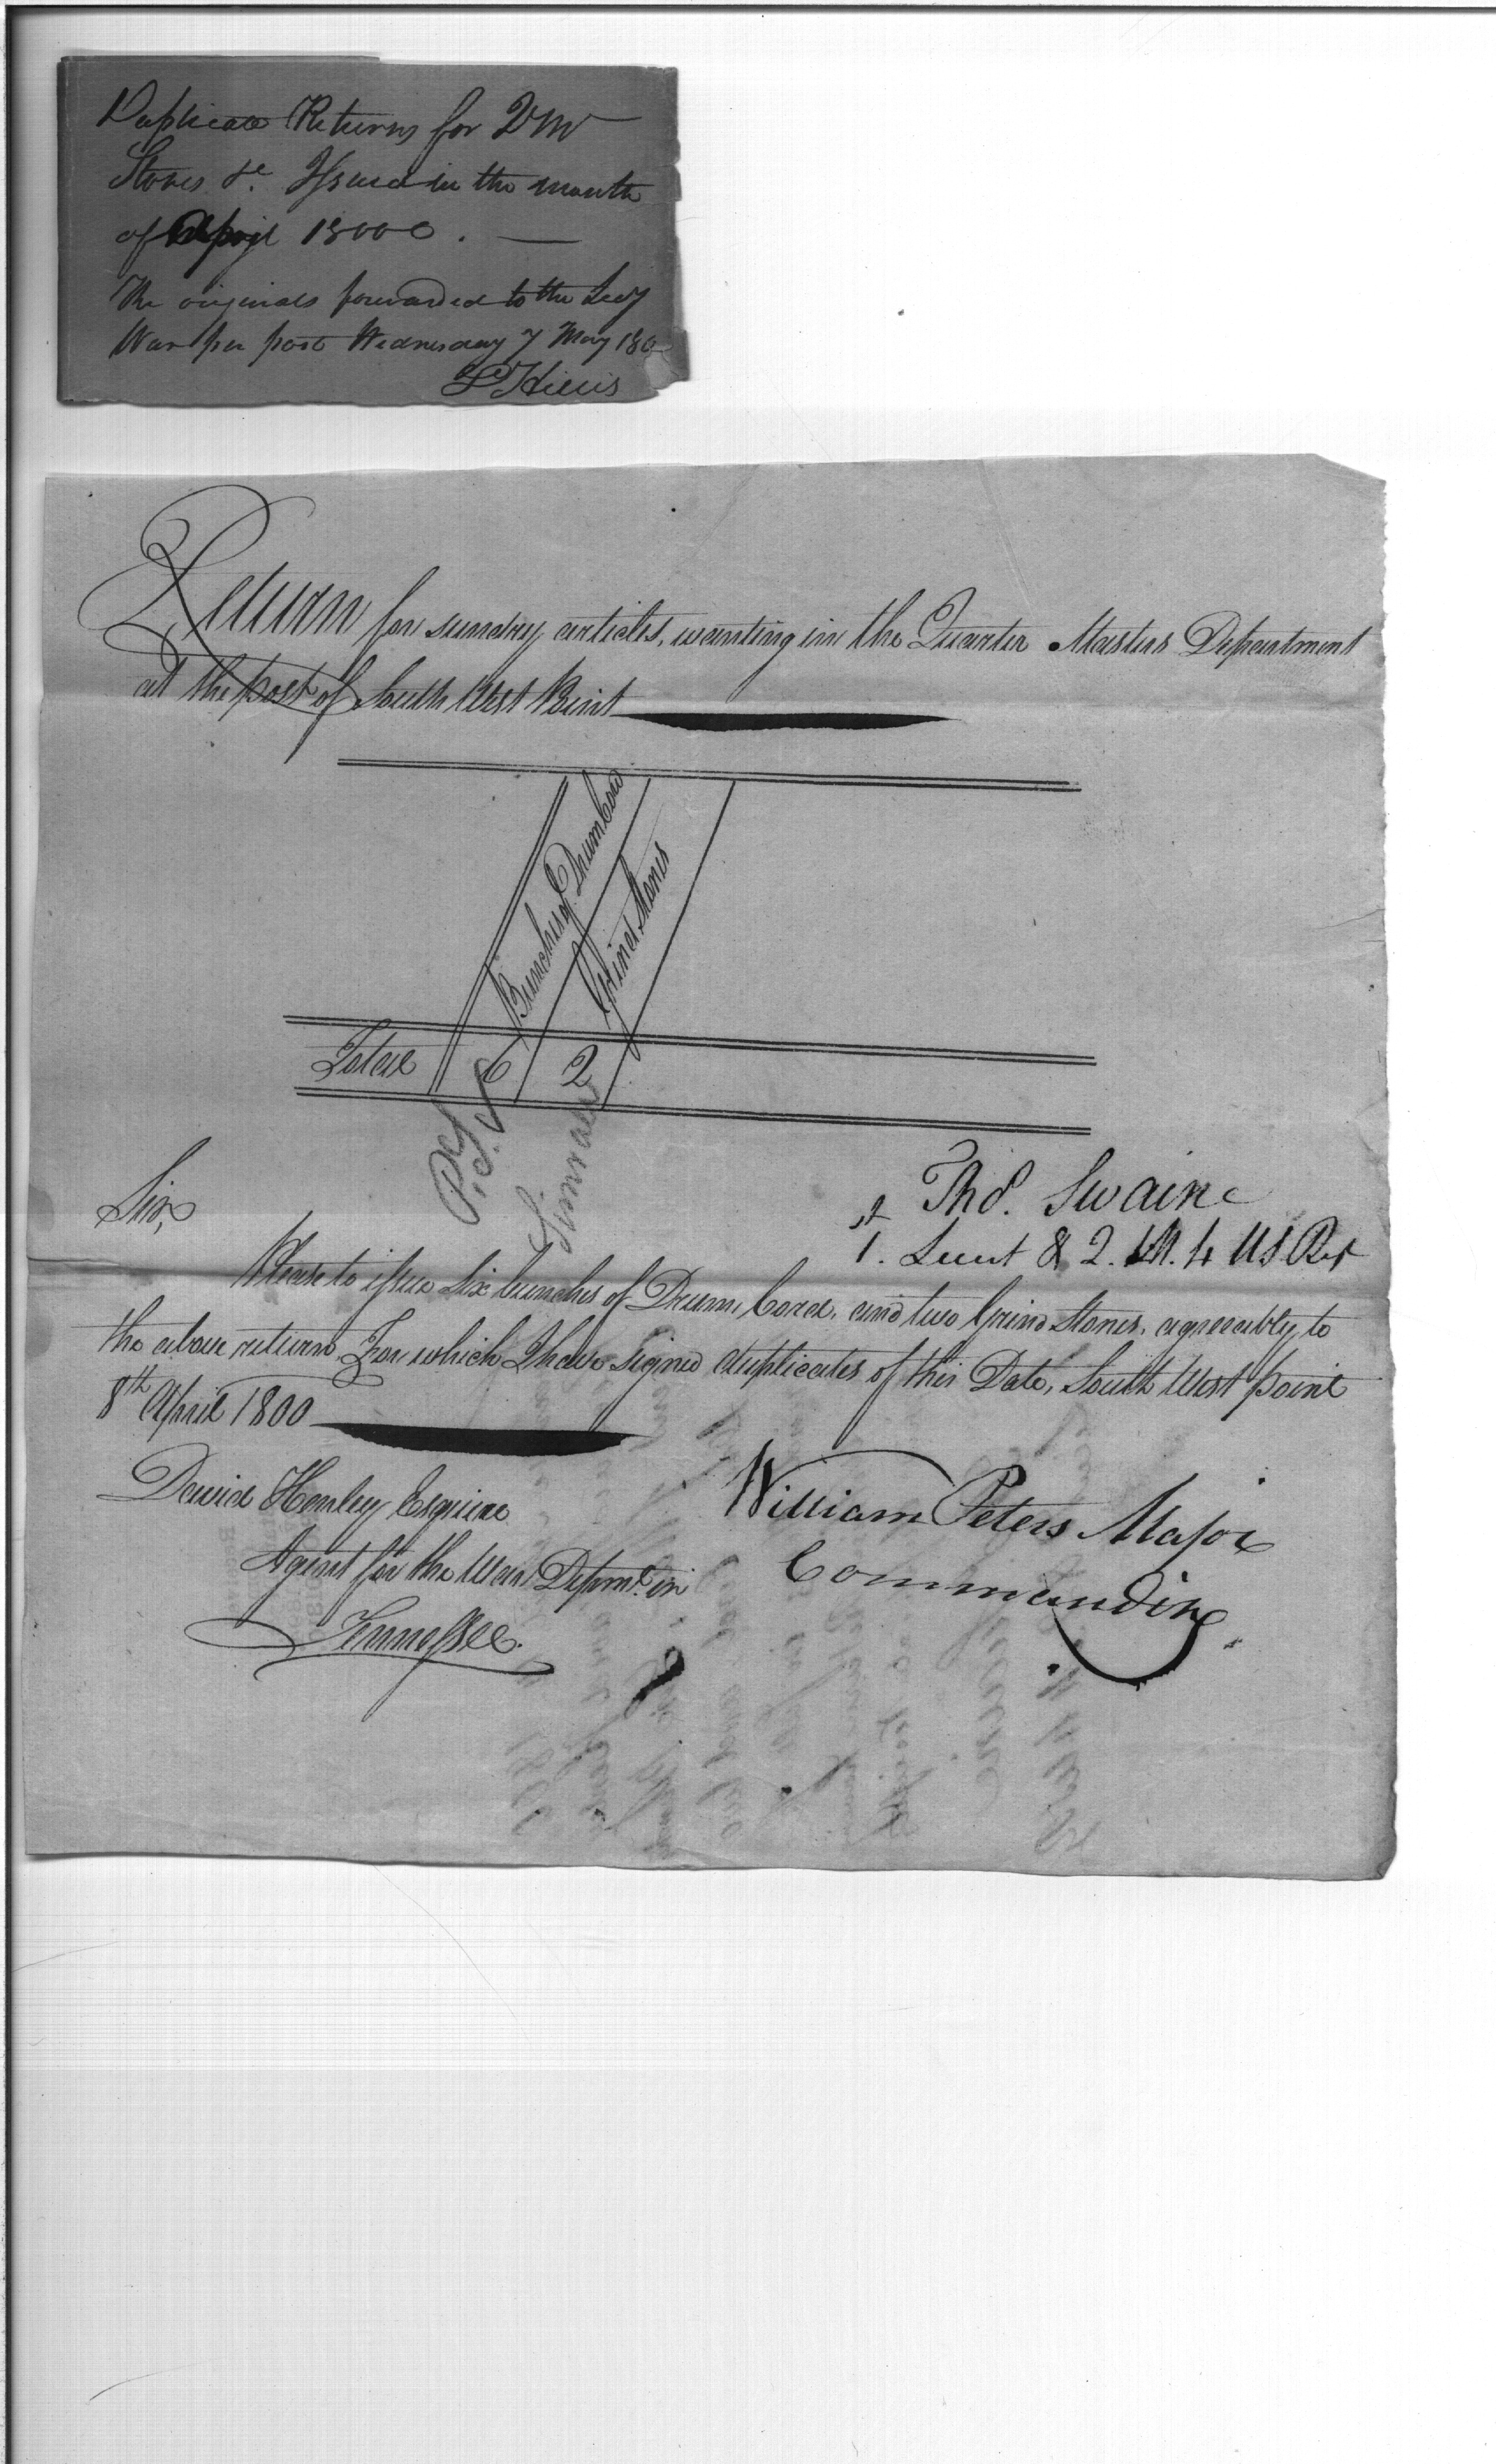 Duplicate Returns for QM
Stores &c. Issued in the month
of April 18000. —
The originals forwarded to the Secy
War per post Wednesday 7 May 180
Return for sundry articles, wanting in the Quarter Masters Department
at the post of South West Point
Bunches of Drum Cord
Grind Stones
Total 6 2
Thos. Swaine
1st. Lieut & 2. M. 4 US Regt
Sir,
Please to issue Six bunches of Drum Cord, and two Grind Stones, agreeably to
the above return. For which I have signed duplicates of this Date, South West point
8th April 1800
David Henley Esquire
Agent for the War Depmt. in
Tennessee.
William Peters Major
Commanding